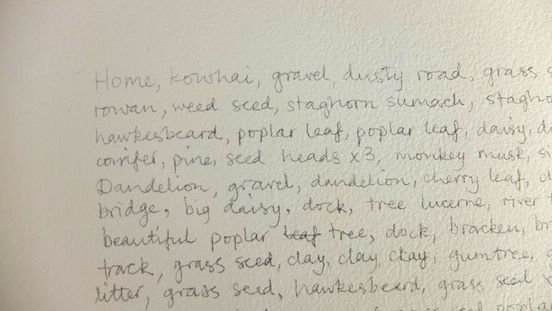 Home, kowhai, gravel, dusty road, grass s
rowan, weed seed, staghorn sumach, stagho
hawkesbeard, poplar leaf, poplar leaf, daisy, d
conifer, pine, seed heads x3, monkey musk, si
Dandelion, gravel, dandelion, cherry leaf, d
bridge, big daisy, dock, tree lucerne, river t
beautiful poplar leaf tree, dock, bracken, br
track, grass seed, clay, clay, clay, gumtree, g
litter, grass seed, hawkesbeard, grass seed x